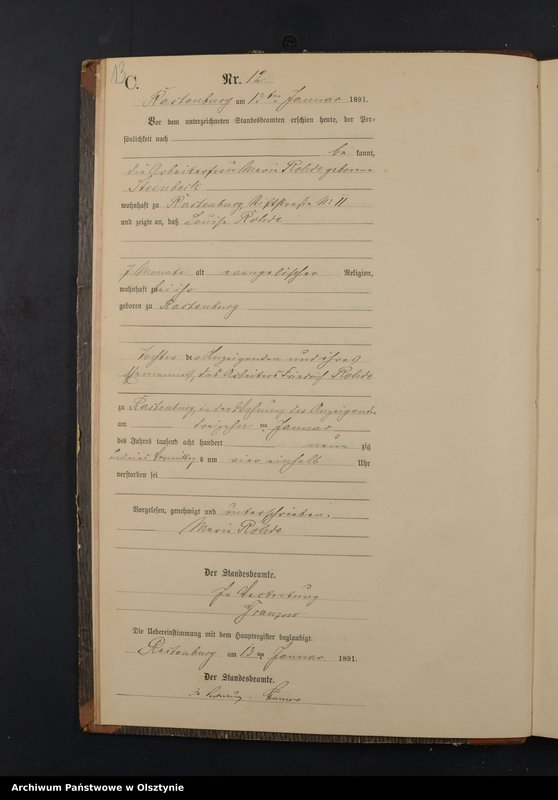 13
C.
Nr. 12
Rastenburg am 13ten Januar 1891.
Vor dem unterzeichneten Standesbeamten erschien heute, der Per-
sönlichkeit nach
be kannt,
die Arbeiterfrau Marie Rohde geborene
Steinbeck
wohnhaft zu Rastenburg, Stiftstraße № 11
und zeigte an, daß Louise Rohde
7 Monate alt evangelischer Religion,
wohnhaft zu bei ihr
geboren zu Rastenburg
Tochter der Anzeigenden und ihres
Ehemannes, des Arbeiters Friedrich Rohde
zu Rastenburg, in der Wohnung der Anzeigenden
am dreizehn ten Januar
des Jahres tausend acht hundert neun zig
und eins Vormittags um vier einhalb Uhr
verstorben sei
Vorgelesen, genehmigt und unterschrieben.
Marie Rohde
Der Standesbeamte.
In Vertretung
Die Uebereinstimmung mit dem Hauptregister beglaubigt.
Rastenburg am 13 ten Januar 1891.
Der Standesbeamte.
In Vertretung
Archiwum Państwowe w Olsztynie